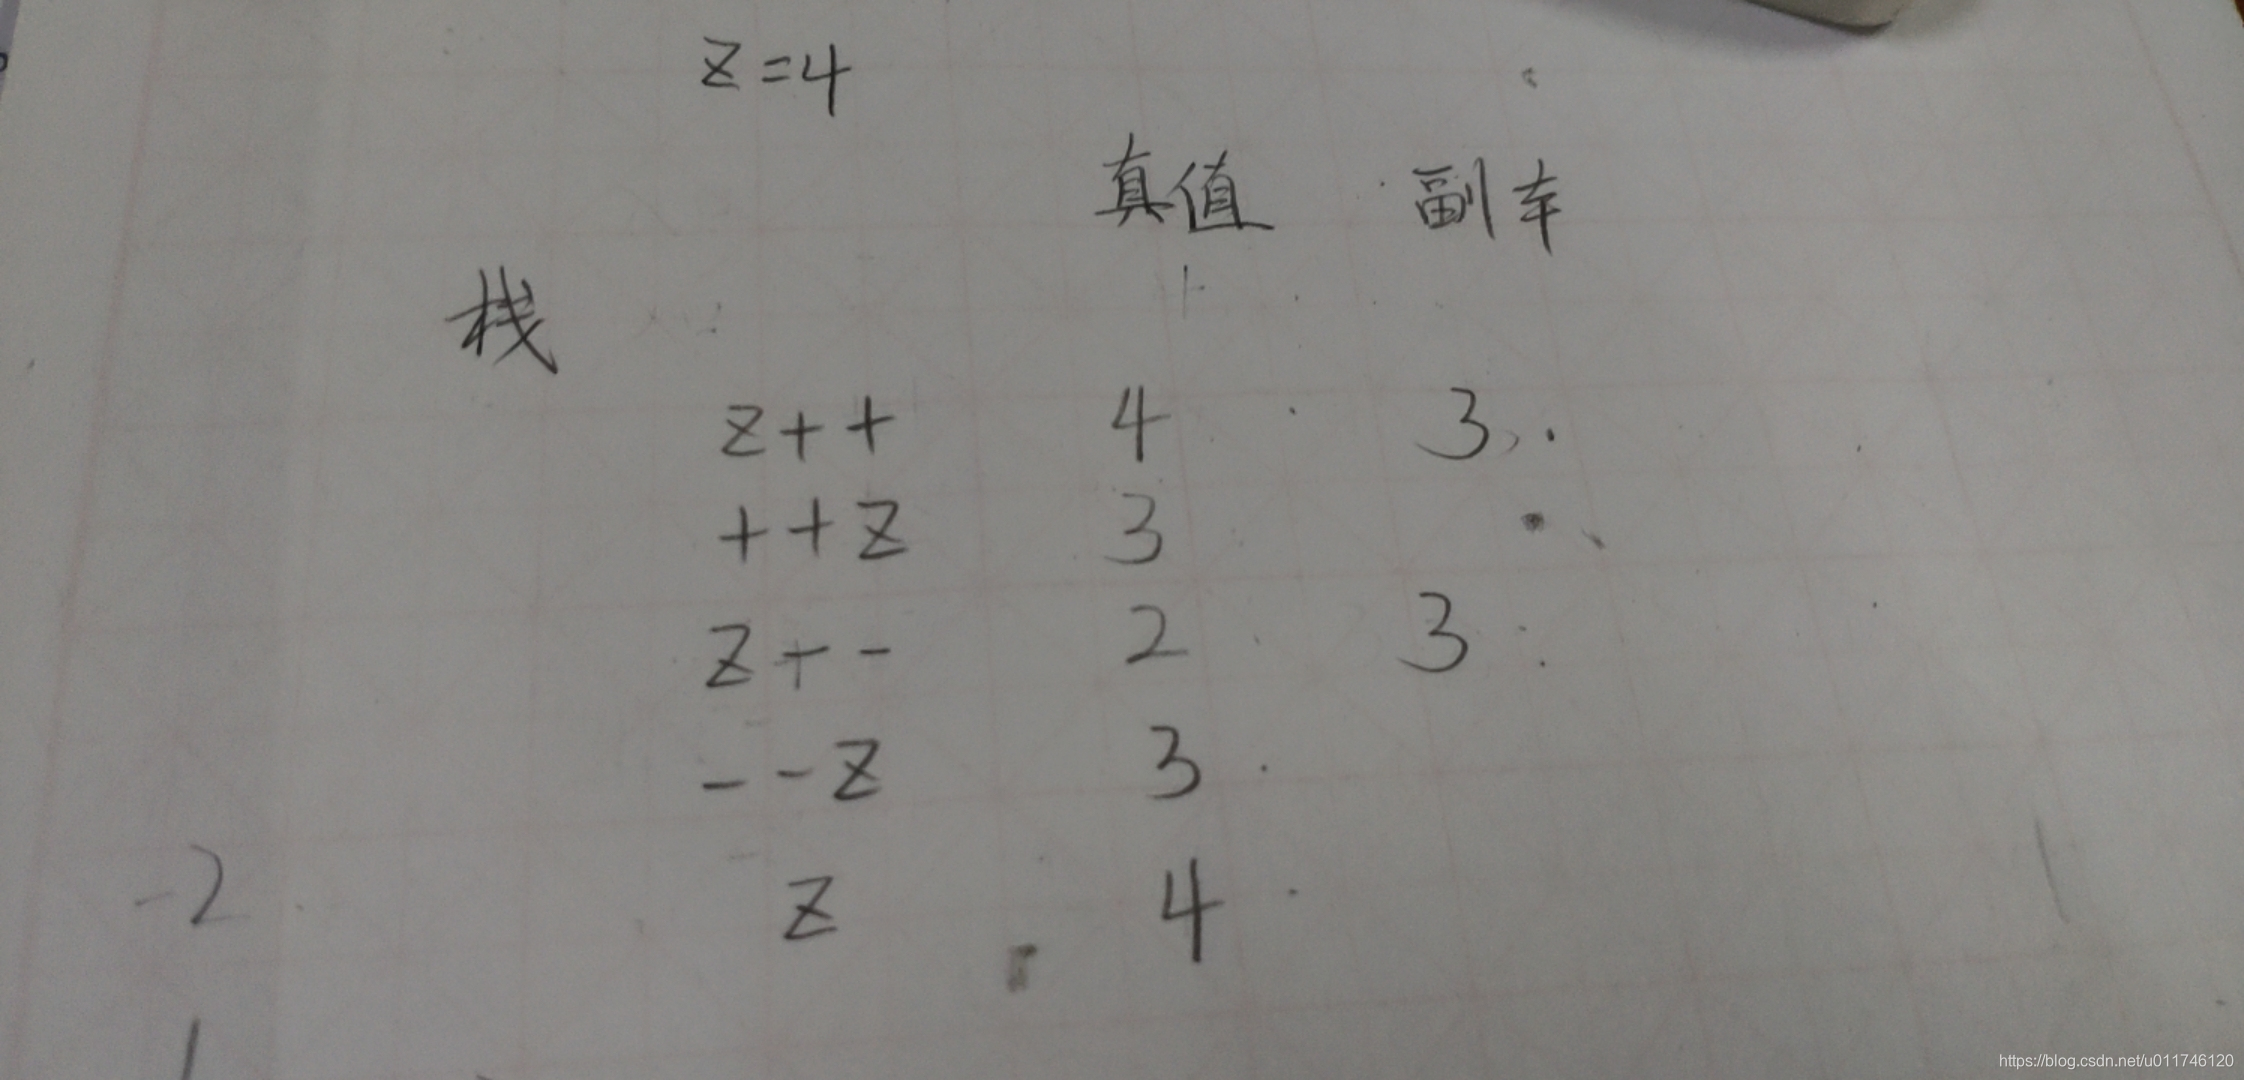 z=4
真值 副本
栈
z++ 4 3
++z 3
z+- 2 3
--z 3
-2 z 4
https://blog.csdn.net/u011746120